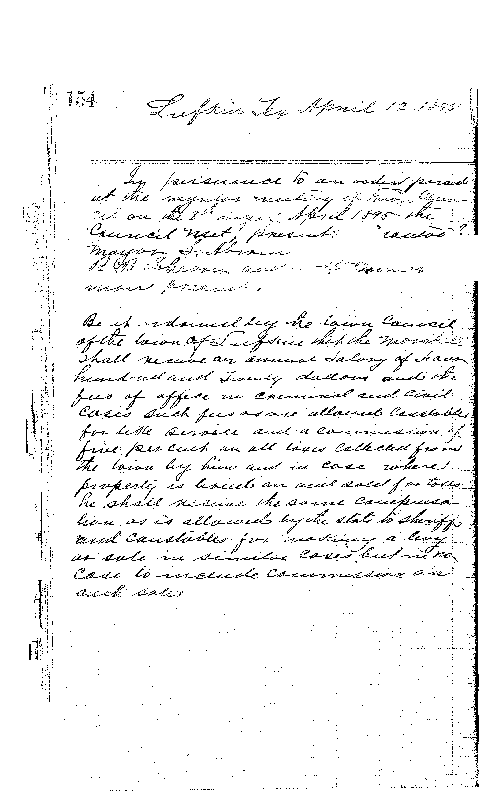 154
Lufkin Tex April 12 1895
In pursuance to an order passed
at the regular meeting of Town Coun
cil on the 8th day of April 1895 the
Council met, present:
Mayor
and
were present.
Be it ordained by the town Council
of the town of Lufkin that the Marshal
shall receive an annual Salary of
hundred and Twenty dollars and the
fees of office in criminal and civil
cases such fees as are allowed Constables
for like service and a commission of
five per cent on all taxes collected from
the town by him and in case where
property is levied on and sold for taxes
he shall receive the same compensa
tion as is allowed by the state to sheriffs
and Constables for making a levy
or sale in similar cases but in no
case to include commission on
such sale.